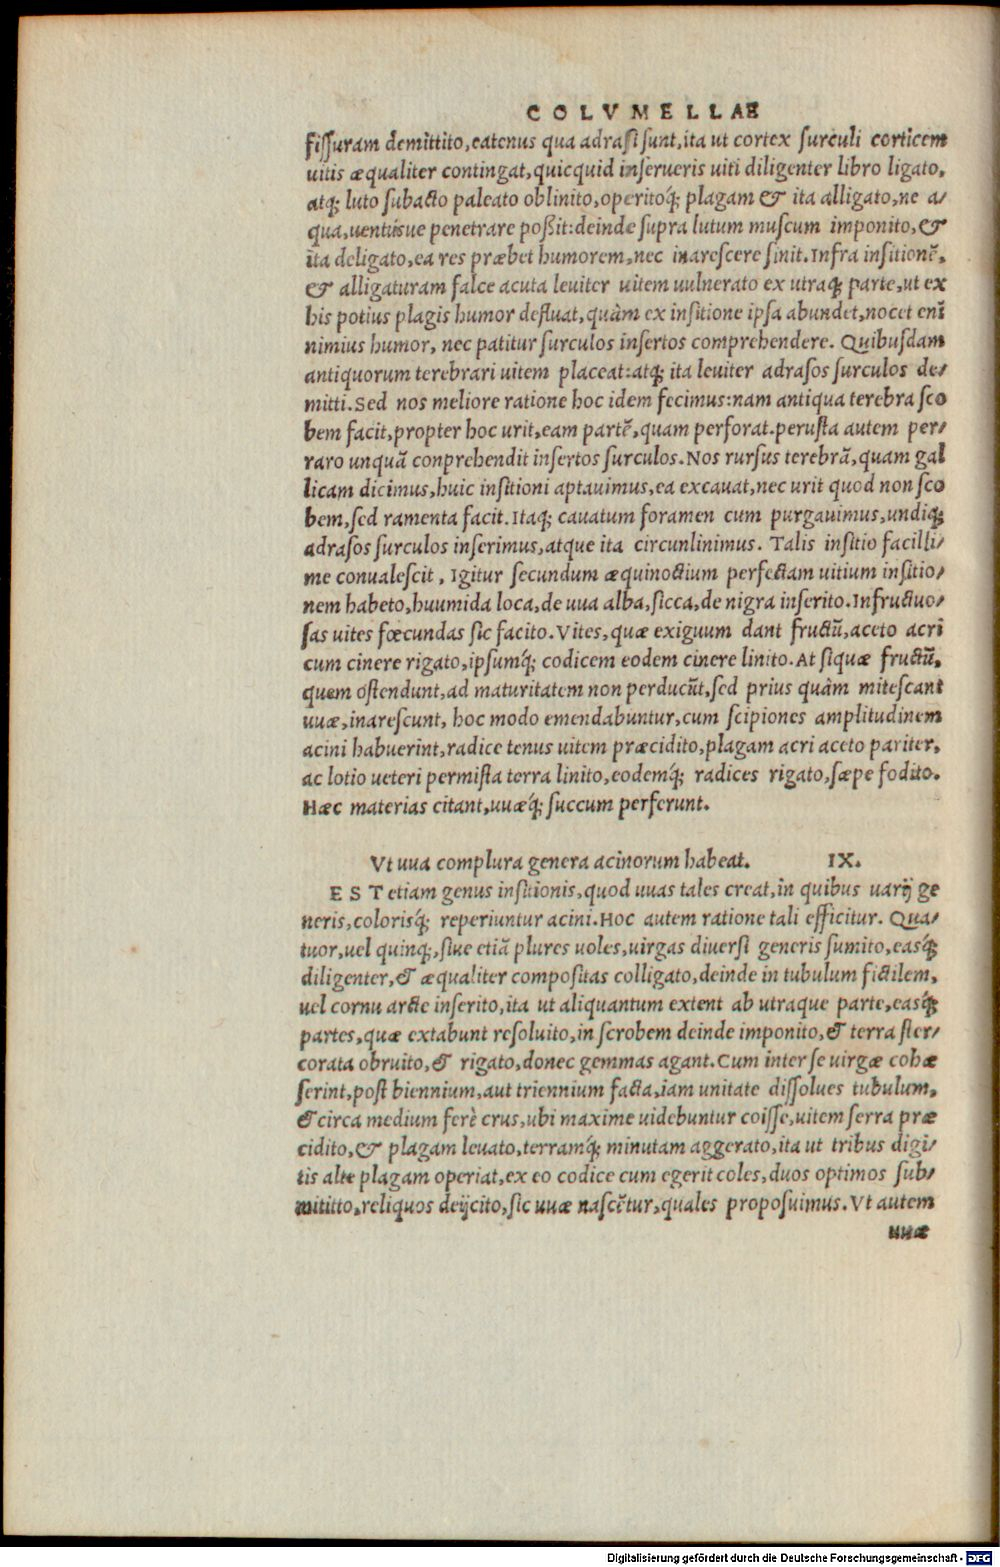 COLVMELLAE
fiſſuram demittito,eatenus qua adraſi ſunt,ita ut cortex ſurculi corticem
uitis æqualiter contingat,quicquid inſerueris uiti diligenter libro ligato,
atq; luto ſubacto paleato oblinito,operitoq́; plagam & ita alligato,ne a/
qua,uentúsue penetrare poßit:deinde ſupra lutum muſcum imponito,&
ita deligato,ea res præbet humorem,nec inareſcere ſinit.Infra inſitionē,
& alligaturam falce acuta leuiter uitem uulnerato ex utraq; parte,ut ex
his potius plagis humor defluat,quàm ex inſitione ipſa abundet,nocet enī
nimius humor, nec patitur ſurculos inſertos comprehendere. Quibuſdam
antiquorum terebrari uitem placeat:atq; ita leuiter adraſos ſurculos de/
mitti.Sed nos meliore ratione hoc idem fecimus:nam antiqua terebra ſco
bem facit,propter hoc urit,eam partē,quam perforat.peruſta autem per/
raro unquā conprehendit inſertos ſurculos.Nos rurſus terebrā,quam gal
licam dicimus,huic inſitioni aptauimus,ea excauat,nec urit quod non ſco
bem,ſed ramenta facit.Itaq; cauatum foramen cum purgauimus,undiq;
adraſos ſurculos inſerimus,atque ita circunlinimus. Talis inſitio facilli/
me conualeſcit, Igitur ſecundum æquinoctium perfectam uitium inſitio/
nem habeto,huumida loca,de uua alba,ſicca,de nigra inſerito.Infructuo/
ſas uites fœcundas ſic facito.Vites,quæ exiguum dant fructū,aceto acri
cum cinere rigato,ipſumq́; codicem eodem cinere linito.At ſiquæ fructū,
quem oſtendunt,ad maturitatem non perducūt,ſed prius quàm miteſcant
uuæ,inareſcunt, hoc modo emendabuntur,cum ſcipiones amplitudinem
acini habuerint,radice tenus uitem præcidito,plagam acri aceto pariter,
ac lotio ueteri permiſta terra linito,eodemq́; radices rigato,ſæpe fodito.
Hæc materias citant,uuæq́; ſuccum perferunt.
Vt uua complura genera acinorum habeat. IX.
EST etiam genus inſitionis,quod uuas tales creat,in quibus uarij ge
neris,colorisq́; reperiuntur acini.Hoc autem ratione tali efficitur. Qua/
tuor,uel quinq;,ſiue etiā plures uoles,uirgas diuerſi generis ſumito,easq́;
diligenter,& æqualiter compoſitas colligato,deinde in tubulum fictilem,
uel cornu arcte inſerito,ita ut aliquantum extent ab utraque parte,easq́;
partes,quæ extabunt reſoluito,in ſcrobem deinde imponito,& terra ſter/
corata obruito,& rigato,donec gemmas agant.Cum inter ſe uirgæ cohæ
ſerint,poſt biennium,aut triennium facta,iam unitate diſſolues tubulum,
& circa medium ferè crus,ubi maxime uidebuntur coiſſe,uitem ſerra præ
cidito,& plagam leuato,terramq́; minutam aggerato,ita ut tribus digi/
tis alte plagam operiat,ex eo codice cum egerit coles,duos optimos ſub/
mititto,reliquos deijcito,ſic uuæ naſcētur,quales propoſuimus.Vt autem
uuæ
Digitalisierung gefördert durch die Deutsche Forschungsgemeinschaft - DFG